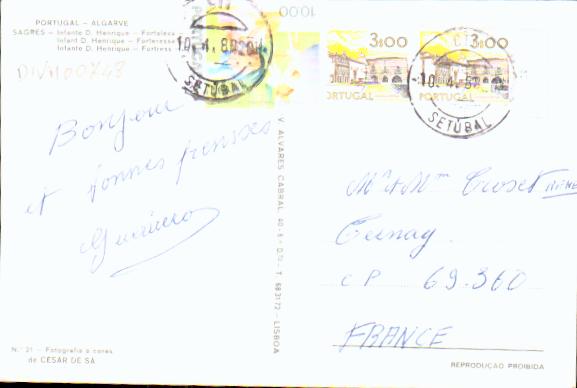 PORTUGAL — ALGARVE
SAGRES — Infante D. Henrique — Fortaleza
Infant D. Henrique — Forteresse
Infante D. Henrique — Fortress
DIVH00748
Bonjour
et bonnes pensées
10.4.8
SETÚBAL
1000
3$00
PORTUGAL
3$00
PORTUGAL
10.4.8
SETÚBAL
V. ALVARES CABRAL, 40-r/c - D.to - T. 683172 - LISBOA
Mr et Mme Croset RENÉ
Ternay
CP 69.360
FRANCE
N.º 21 — Fotografia a cores
de CÉSAR DE SÁ
REPRODUÇÃO PROIBIDA